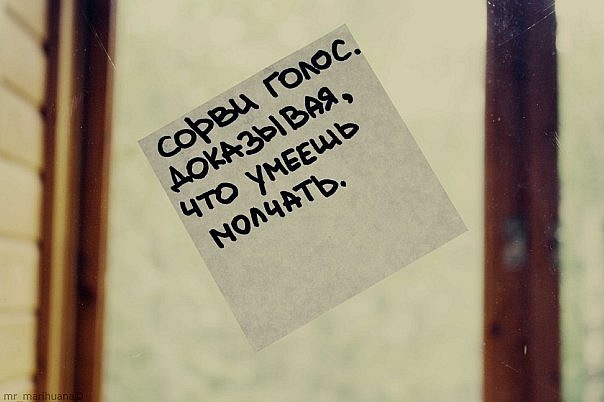 СОРВИ ГОЛОС.
ДОКАЗЫВАЯ,
ЧТО УМЕЕШЬ
МОЛЧАТЬ.
mr_marihuana